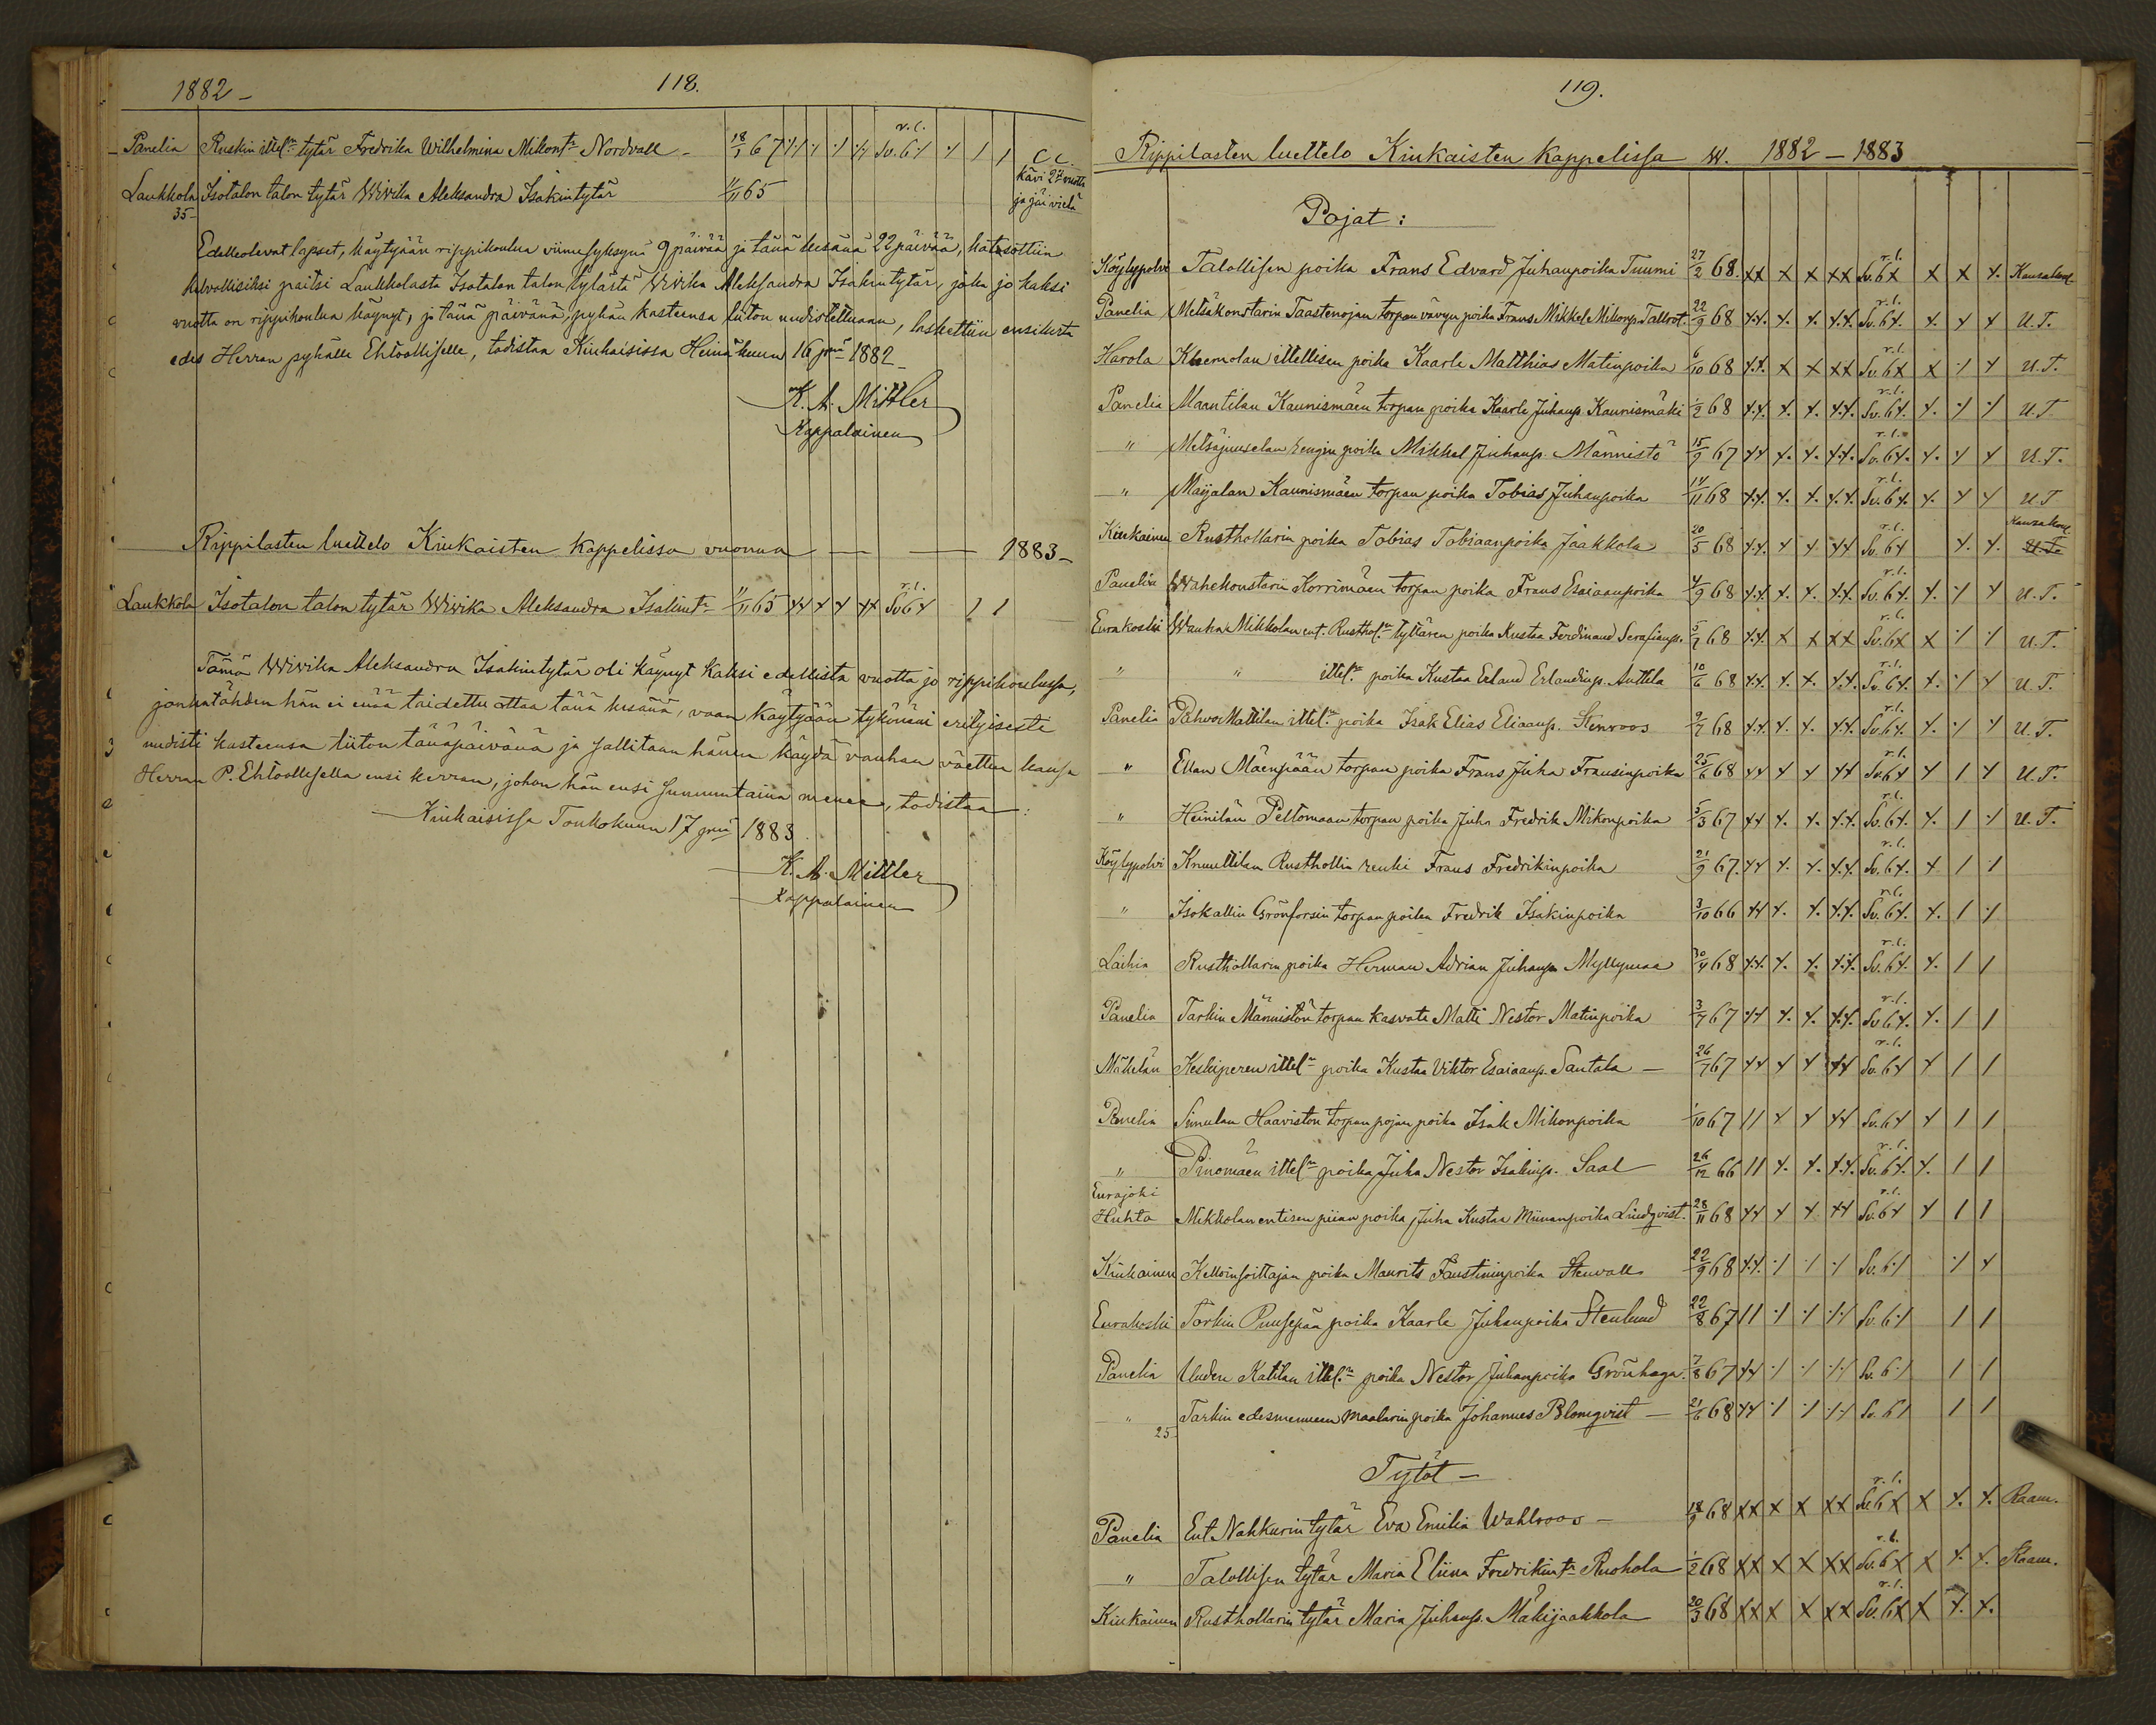 1882 –
118.
Panelia Ruskin ittel:n tytär Fredrika Wilhelmina Mikont:r Nordvall – 18/1 67 r.l. Sv. 6 C.C.
Laukkola Isotalon talon tytär Wivika Aleksandra Isakintytär 11/11 65 Kävi 2 vuotta
35– ja jäi vielä
Edelläolevat lapset, käytyään rippikoulua viime syksynä 9 päivää ja tänä kesänä 22 päivää, katsottiin
kelvollisiksi paitsi Laukkolasta Isotalon talon tytärtä Wivika Aleksandra Isakintytär, joka jo kaksi
vuotta on rippikoulua käynyt, ja tänä päivänä, pyhän kasteensa liiton uudistettuaan, laskettiin ensikerta
edes Herran pyhälle Ehtoolliselle, todistaa Kiukaisissa Heinäkuun 16 p:nä 1882 –
K. A. Mittler
Kappalainen
Rippilasten luettelo Kiukaisten Kappelissa vuonna — 1883 –
Laukkola Isotalon talon tytär Wivika Aleksandra Isakint:r 11/11 65 r.l. Sv 6
Tämä Wivika Aleksandra Isakintytär oli käynyt kaksi edellistä vuotta jo rippikoulussa,
jonkatähden hän ei enää taidettu ottaa tänä kesänä, vaan käytyään tykönäni erityisesti
uudisti kasteensa liiton tänäpäivänä ja sallitaan hänen käydä vanhan väettun kansa
Herran P. Ehtoollisella ensi kerran, johon hän ensi sunnuntaina menee, todistaa:
Kiukaisissa Toukokuun 17 p:nä 1883.
K. A. Mittler
Kappalainen
119.
Rippilasten luettelo Kiukaisten Kappelissa w. 1882 – 1883
Pojat:
Köylypolvi Talollisen poika Frans Edvard Juhanpoika Tuumi 27/2 68. xx x x xx r.l. Sv. 6 x x x x. Kansakoul
Panelia Metsäkonstarin Taastenojan torpan vävyn poika Frans Mikkel Mikonp. Tallrot. 22/9 68 r.l. Sv. 6 U.T.
Harola Khemolan ittellisen poika Kaarle Matthias Matinpoika 6/10 68 r.l. Sv. 6 U.T.
Panelia Maantilan Kaunismäen torpan poika Kaarle Juhanp. Kaunismäki 1/2 68 r.l. Sv. 6 U.T
" Metsäjuuselan rengin poika Mikkel Juhanp. Männistö 15/9 67 r.l. Sv. 6 U.T.
" Maijalan Kaunismäen torpan poika Tobias Juhanpoika 14/11 68 r.l. Sv. 6 U.T
Kiukainen Rusthollarin poika Tobias Tobiaanpoika Jaakkola 20/5 68 r.l. Sv. 6 Kansakoul U.T.
Panelia Wahekonstarin Korrimäen torpan poika Frans Esaiaanpoika 4/9 68 r.l. Sv. 6 U.T.
Eurakoski Wanha Mikkolan ent. Rusthol:n tyttären poika Kustaa Ferdinand Serafianp. 5/7 68 r.l. Sv. 6 U.T.
" " ittel:n poika Kustaa Erland Erlandinp. Anttila 10/6 68 r.l. Sv. 6 U.T.
Panelia Pahvo Mattilan ittel:n poika Isak Elias Eliaanp. Stenroos 9/7 68 r.l. Sv 6 U.T.
" Ellan Mäenpään torpan poika Frans Juha Fransinpoika 25/6 68 r.l. Sv. 6 U.T.
" Heinilän Peltomaan torpan poika Juho Fredrik Mikonpoika 5/3 67 r.l. Sv. 6 U.T.
Köylypolvi Knuuttilan Rusthollin renki Frans Fredrikinpoika 21/9 67. r.l. Sv. 6
" Isokallin Grönforsin torpan poika Fredrik Isakinpoika 3/10 66 r.l. Sv. 6
Laihia Rusthollarin poika Herman Adrian Juhanp Myllymaa 30/4 68 r.l. Sv. 6
Panelia Tarkin Männistön torpan kasvate Matti Nestor Matinpoika 3/7 67 r.l. Sv 6
Mäkelän Keskiperen ittel:n poika Kustaa Viktor Esaiaanp. Santala – 26/7 67 r.l. Sv. 6
Panelia Simulan Haaviston torpan pojan poika Isak Mikonpoika 1/10 67 Sv. 6
" Pinomäen ittel:n poika Juha Nestor Isakinp. Saal 26/12 66 r.l. Sv. 6
Eurajoki
Huhta Mikkolan entisen piian poika Juha Kustaa Miinanpoika Lindqvist. 28/11 68 r.l. Sv. 6
Kiukainen Kelloinsoittajan poika Maurits Faustininpoika Stenvall 22/9 68 Sv. 6
Eurakoski Torkin Puusepän poika Kaarle Juhanpoika Stenlund 22/8 67 Sv. 6
Panelia Uuden Katilan ittel:n poika Nestor Juhanpoika Grönhaga. 7/8 67 Sv. 6
" Tarkin edesmenneen maalarin poika Johannes Blomqvist – 21/6 68 Sv. 6
25–
Tytöt –
Panelia Ent. Nahkurin tytär Eva Emilia Wahlroos – 18/9 68 xx x x xx r.l. Sv. 6 x x x. x. Raam.
" Talollisen tytär Maria Eliina Fredrikint:r Ruohola 1/2 68 xx x x xx r.l. Sv. 6 x x x. x. Raam.
Kiukainen Rusthollarin tytär Maria Juhanp. Mäkijaakkola 20/3 68 xx x x xx r.l. Sv. 6 x x x. x.